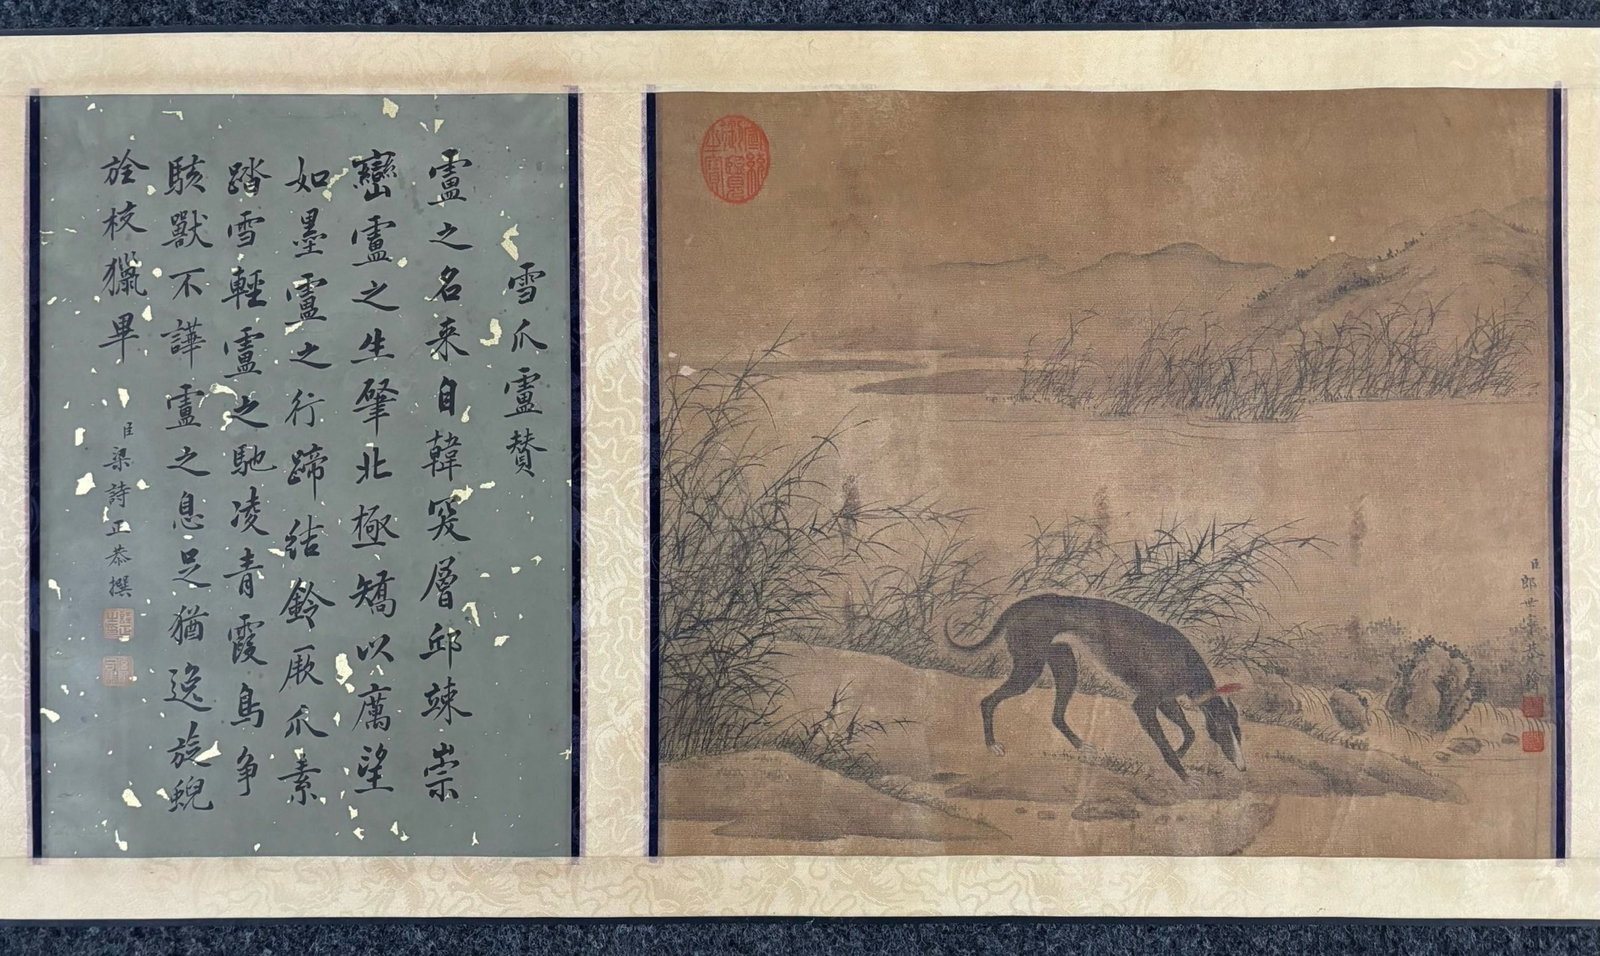 臣郎世寧恭繪
雪爪盧贊
盧之名来自韓冡層邱竦崇
巒盧之生肇北極矯以厲望
如墨盧之行蹄結鈴厥爪素
踏雪輕盧之馳凌青霞鳥争
駭獸不譁盧之息足猶逸旋蜺
旌校獵畢
臣梁詩正恭撰